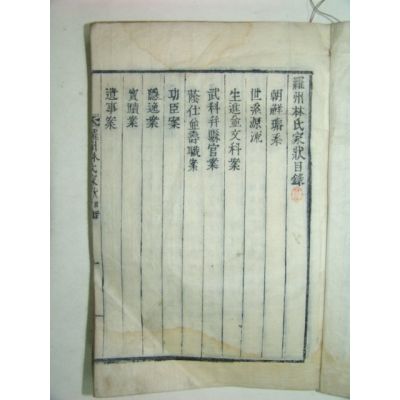 羅州林氏家狀目錄
朝鮮璿系
世系源流
生進並文科案
武科并縣官案
蔭仕並壽職案
功臣案
隱逸案
實蹟案
遺事案
羅州林氏家狀 目錄 一